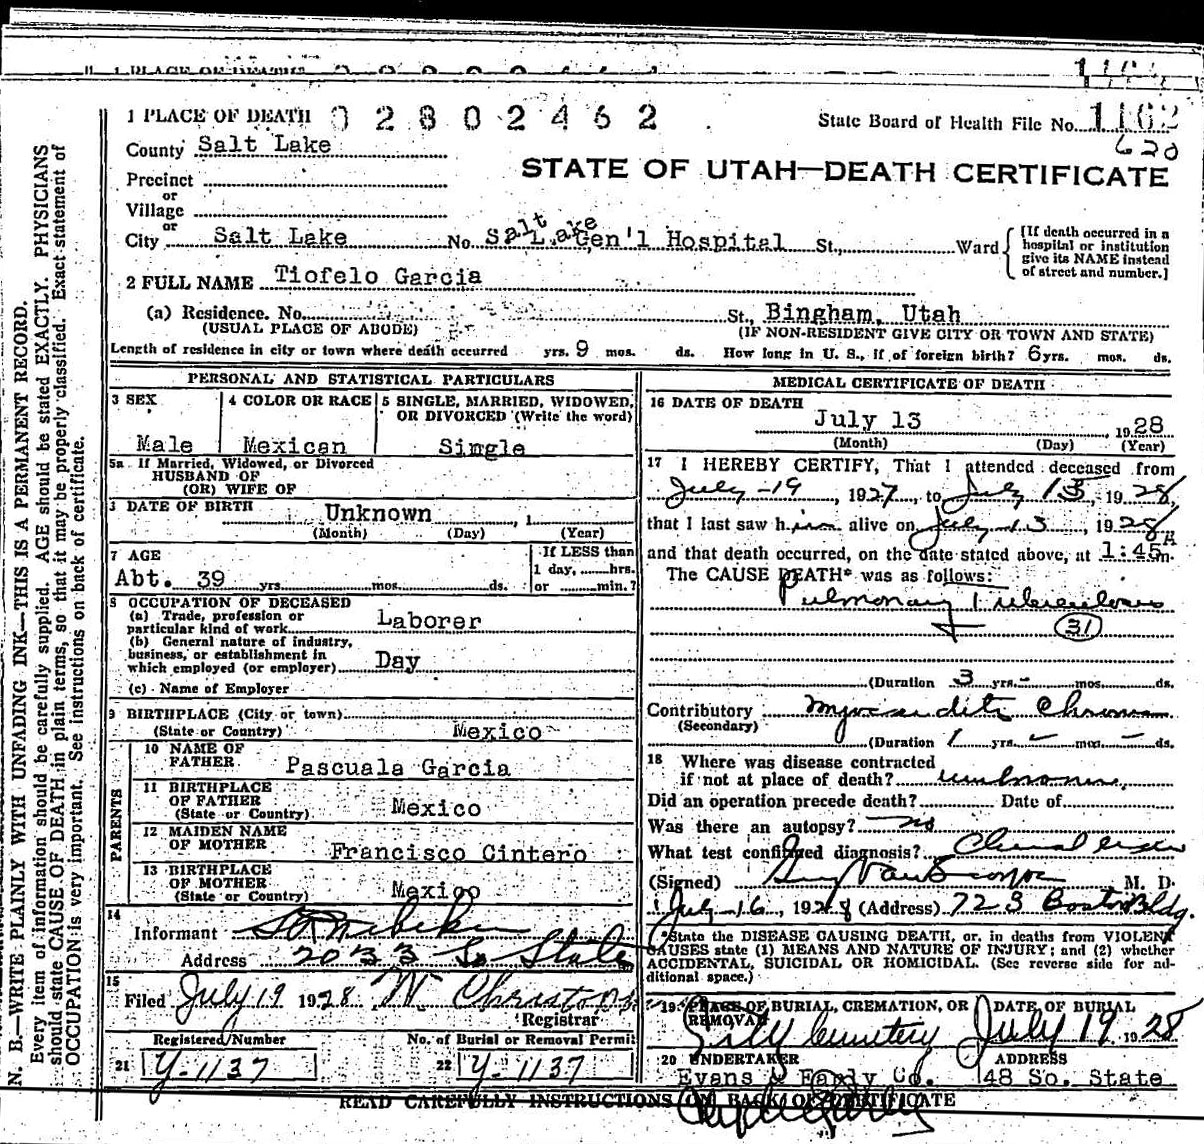 1 PLACE OF DEATH 02802462
State Board of Health File No. 1162
620
County Salt Lake
STATE OF UTAH—DEATH CERTIFICATE
Precinct
or
Village
or
City Salt Lake No. Salt Lake Gen'l Hospital St., Ward
[If death occurred in a hospital or institution give its NAME instead of street and number.]
2 FULL NAME Tiofelo Garcia
(a) Residence. No. St., Bingham, Utah
(USUAL PLACE OF ABODE) (IF NON-RESIDENT GIVE CITY OR TOWN AND STATE)
Length of residence in city or town where death occurred yrs. 9 mos. ds. How long in U. S., if of foreign birth? 6 yrs. mos. ds.
PERSONAL AND STATISTICAL PARTICULARS
3 SEX Male
4 COLOR OR RACE Mexican
5 SINGLE, MARRIED, WIDOWED, OR DIVORCED (Write the word) Single
5a If Married, Widowed, or Divorced
HUSBAND OF
(OR) WIFE OF
DATE OF BIRTH Unknown , 1
(Month) (Day) (Year)
7 AGE
Abt. 39 yrs. mos. ds.
If LESS than
1 day, hrs.
or min.?
8 OCCUPATION OF DECEASED
(a) Trade, profession or
particular kind of work Laborer
(b) General nature of industry,
business, or establishment in
which employed (or employer) Day
(c) Name of Employer
9 BIRTHPLACE (City or town)
(State or Country) Mexico
PARENTS
10 NAME OF
FATHER Pascuala Garcia
11 BIRTHPLACE
OF FATHER
(State or Country) Mexico
12 MAIDEN NAME
OF MOTHER Francisco Cintero
13 BIRTHPLACE
OF MOTHER
(State or Country) Mexico
14
Informant
Address 2033 So State
15
Filed July 19 1928
Registrar
Registered Number
21 Y-1137
No. of Burial or Removal Permit
22 Y-1137
MEDICAL CERTIFICATE OF DEATH
16 DATE OF DEATH
July 13 , 1928
(Month) (Day) (Year)
17 I HEREBY CERTIFY, That I attended deceased from
July-19, 1927, to July 13, 1928,
that I last saw him alive on July 13, 1928,
and that death occurred, on the date stated above, at 1:45 A m.
The CAUSE DEATH* was as follows:
Pulmonary Tuberculosis
31
(Duration 3 yrs. - mos. ds.
Contributory Myocarditis Chronic
(Secondary)
(Duration 1 yrs. - mos. - ds.
18 Where was disease contracted
if not at place of death? unknown
Did an operation precede death? Date of
Was there an autopsy? no
What test confirmed diagnosis?
(Signed) M. D.
July-16, 1928 (Address) 723 Boston Bldg.
*State the DISEASE CAUSING DEATH, or, in deaths from VIOLENT
CAUSES state (1) MEANS AND NATURE OF INJURY; and (2) whether
ACCIDENTAL, SUICIDAL OR HOMICIDAL. (See reverse side for ad-
ditional space.)
19 PLACE OF BURIAL, CREMATION, OR REMOVAL
City Cemetery
DATE OF BURIAL
July 19 1928
20 UNDERTAKER
Evans & Early Co.
ADDRESS
48 So. State
READ CAREFULLY INSTRUCTIONS ON BACK OF CERTIFICATE
N. B.—WRITE PLAINLY WITH UNFADING INK—THIS IS A PERMANENT RECORD.
Every item of information should be carefully supplied. AGE should be stated EXACTLY. PHYSICIANS
should state CAUSE OF DEATH in plain terms, so that it may be properly classified. Exact statement of
OCCUPATION is very important. See instructions on back of certificate.